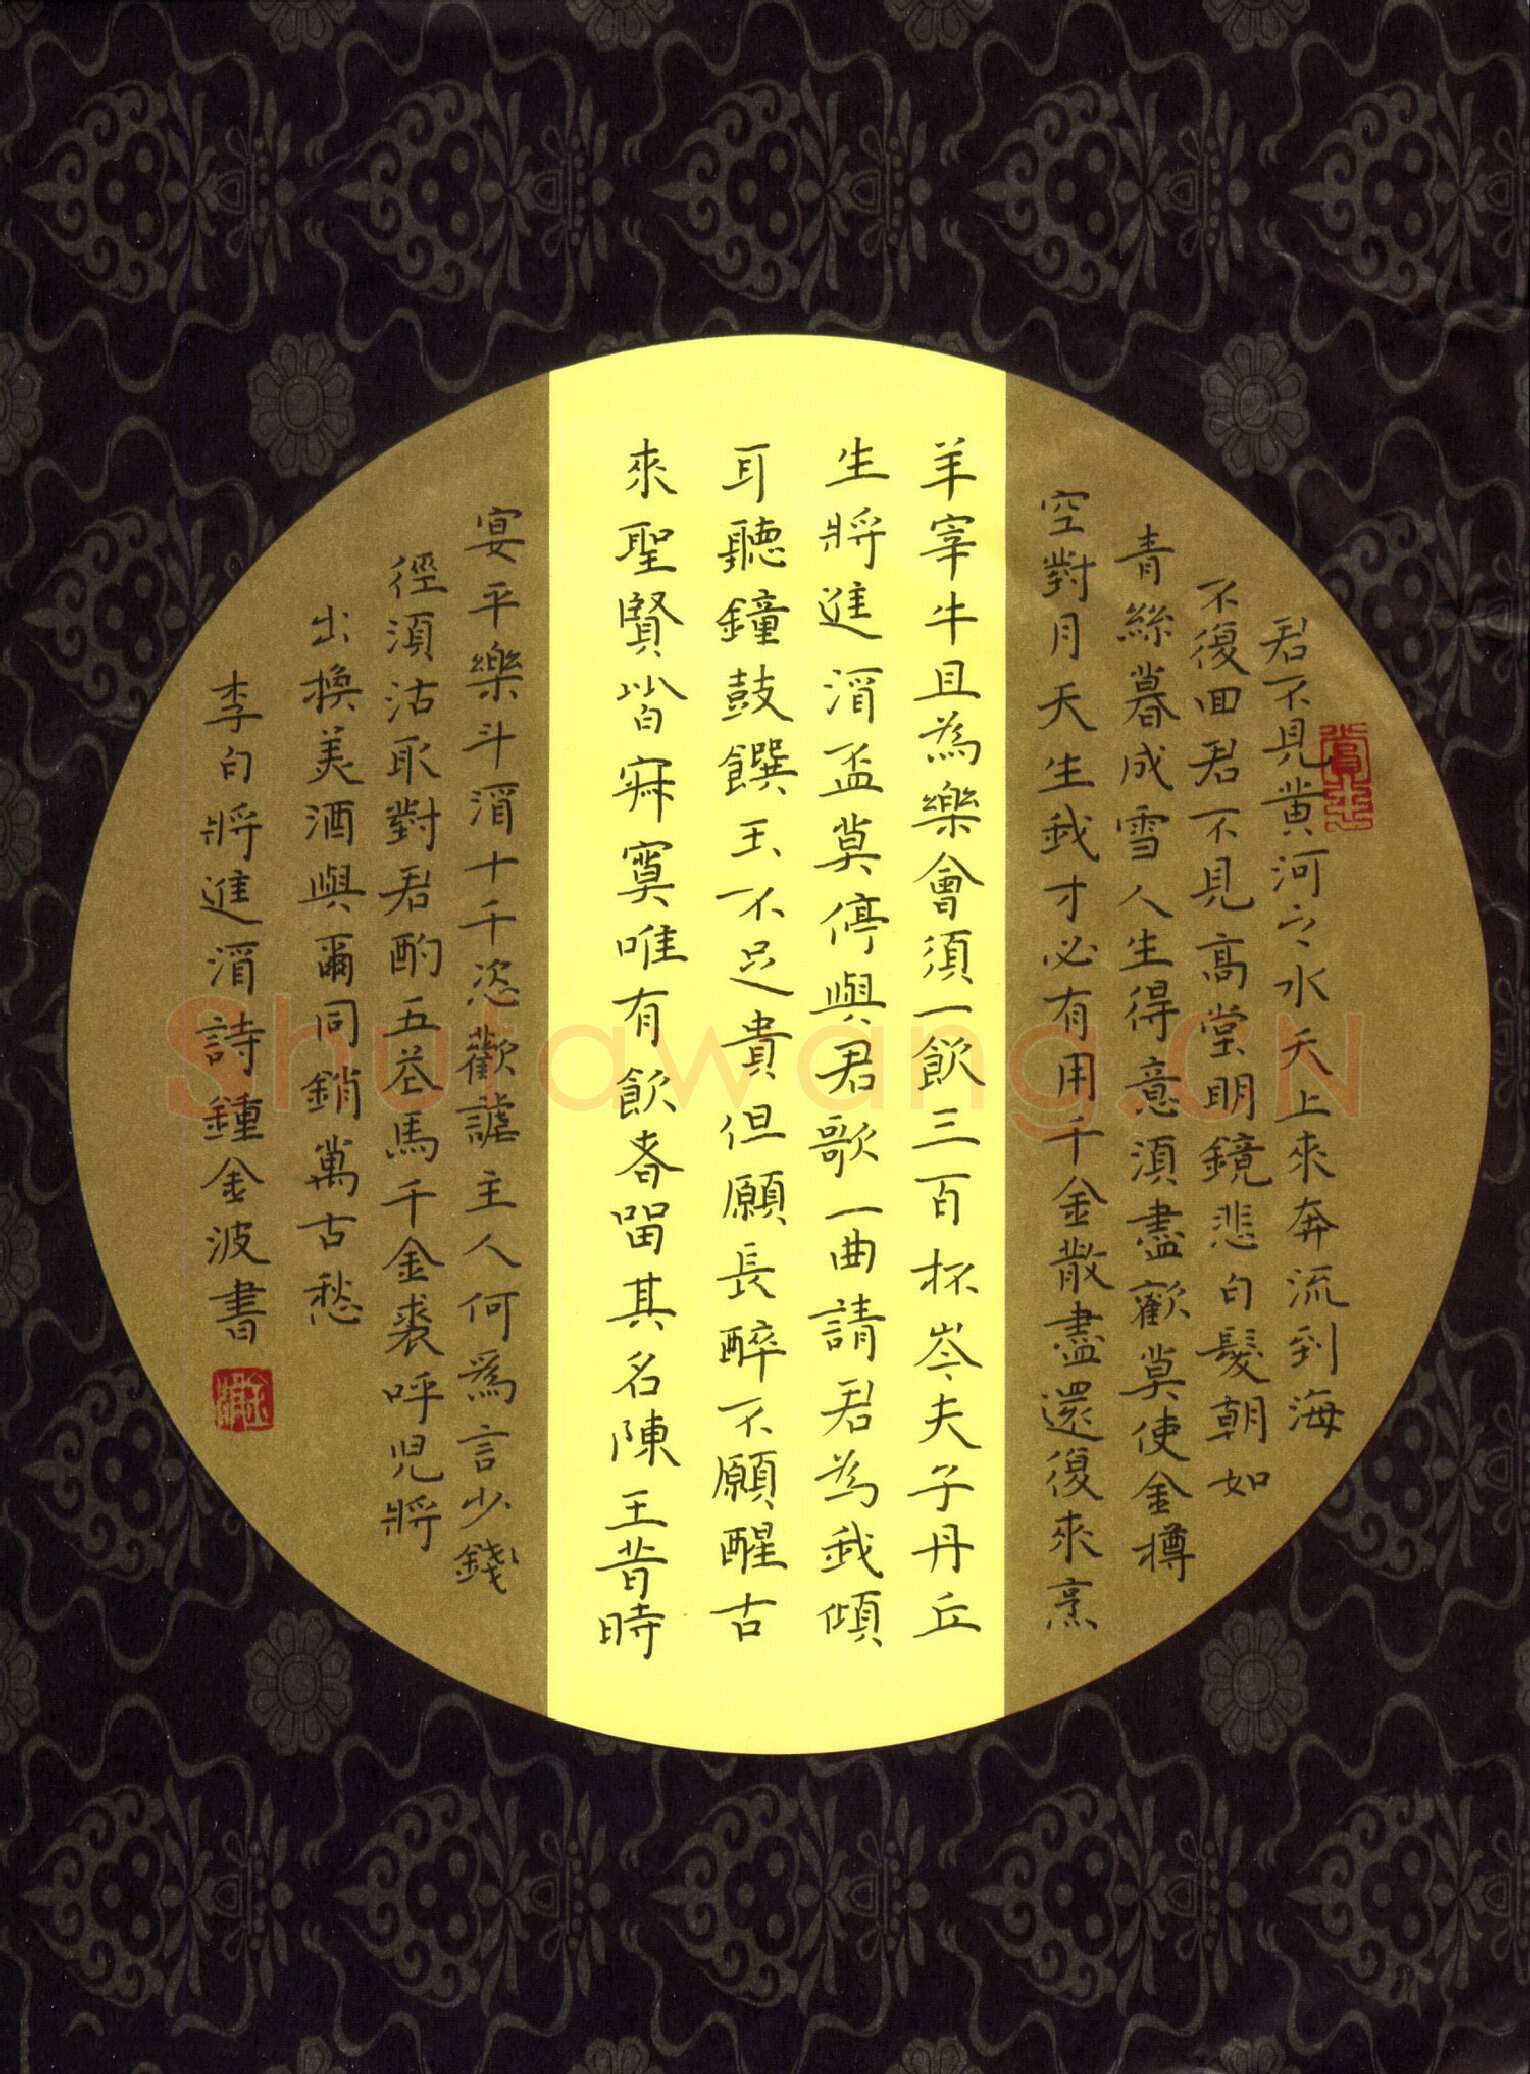 君不見黄河之水天上來奔流到海
不復回君不見高堂明鏡悲白髮朝如
青絲暮成雪人生得意須盡歡莫使金樽
空對月天生我才必有用千金散盡還復來烹
羊宰牛且為樂會須一飲三百杯岑夫子丹丘
生將進酒盃莫停與君歌一曲請君為我傾
耳聽鐘鼓饌玉不足貴但願長醉不願醒古
來聖賢皆寂寞唯有飲者留其名陳王昔時
宴平樂斗酒十千恣歡謔主人何爲言少錢
徑須沽取對君酌五花馬千金裘呼兒將
出換美酒與爾同銷萬古愁
李白將進酒詩鍾金波書
Shufawang.CN